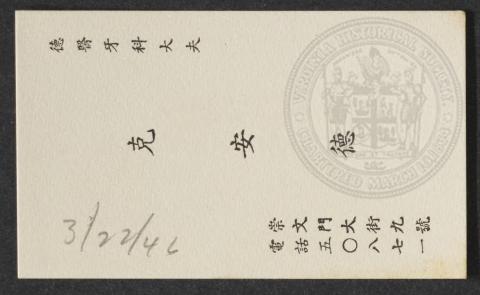 德醫牙科大夫
克安德
崇文門大街九號
電話五〇八七一
3/22/46
VIRGINIA HISTORICAL SOCIETY
CHARTERED MARCH